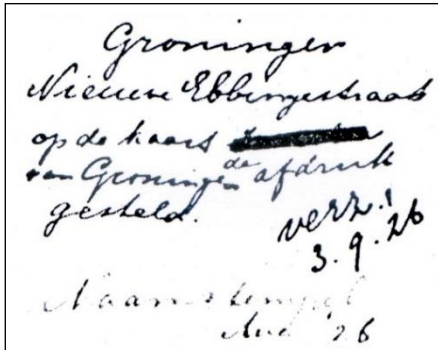 Groningen
Nieuwe Ebbingestraat
op de kaart
van Groningen de afdruk
gesteld.
verz.
3.9.26
Naamstempel
Aug 26